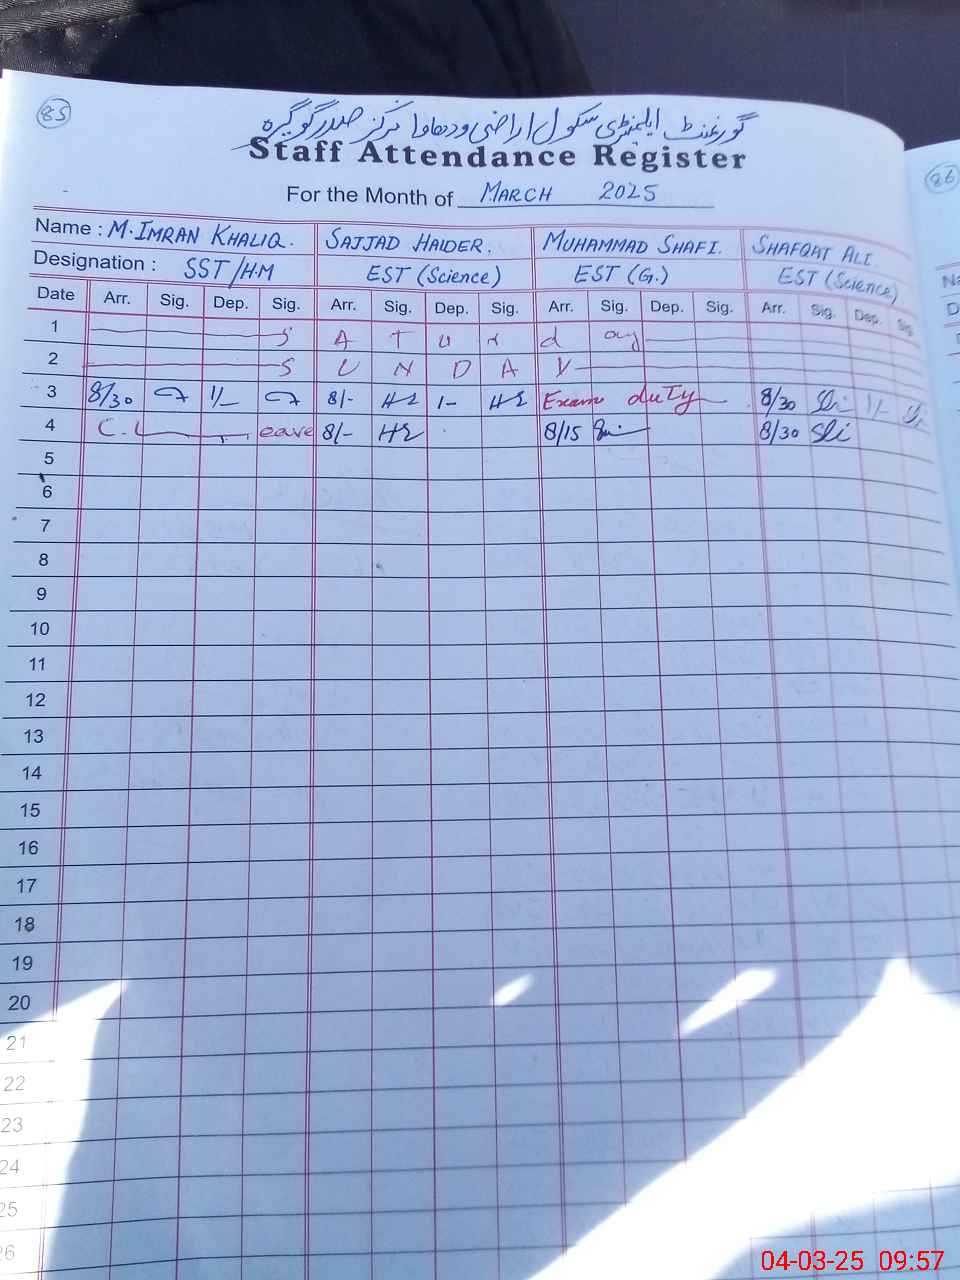 85
گورنمنٹ ایلیمنٹری سکول اراضی ودھاوا مرکز صدر گوگیرہ
Staff Attendance Register
86
For the Month of MARCH 2025
Name : M. IMRAN KHALIQ. SAJJAD HAIDER. MUHAMMAD SHAFI. SHAFQAT ALI
Designation : SST/H.M EST (Science) EST (G.) EST (Science)
Date Arr. Sig. Dep. Sig. Arr. Sig. Dep. Sig. Arr. Sig. Dep. Sig. Arr. Sig. Dep. Sig
1 S A T U R d ay
2 S U N D A Y
3 8/30 1/- 8/- 1- Exam duty 8/30 1/-
4 C. Leave 8/- 8/15 8/30
5
6
7
8
9
10
11
12
13
14
15
16
17
18
19
20
21
22
23
24
25
26
04-03-25 09:57